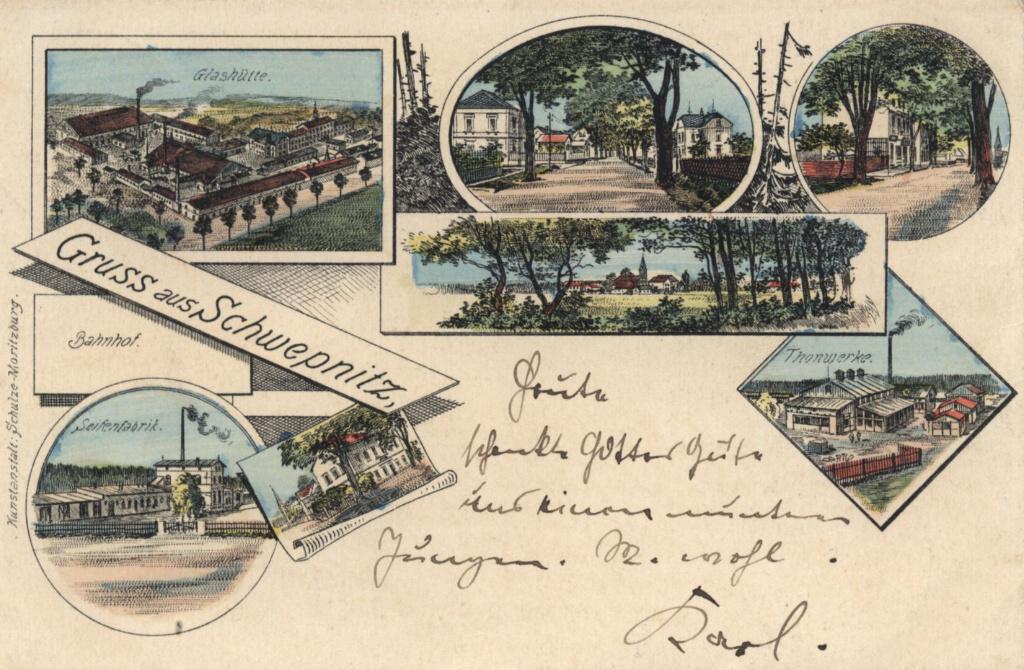 Glashütte.
Gruss aus Schwepnitz,
Bahnhof.
Thonwerke.
Seifenfabrik.
Kunstanstalt: Schulze-Moritzburg.
Heute
schenkte Gottes Güte
uns einen munteren
Jungen. M. wohl.
Karl.